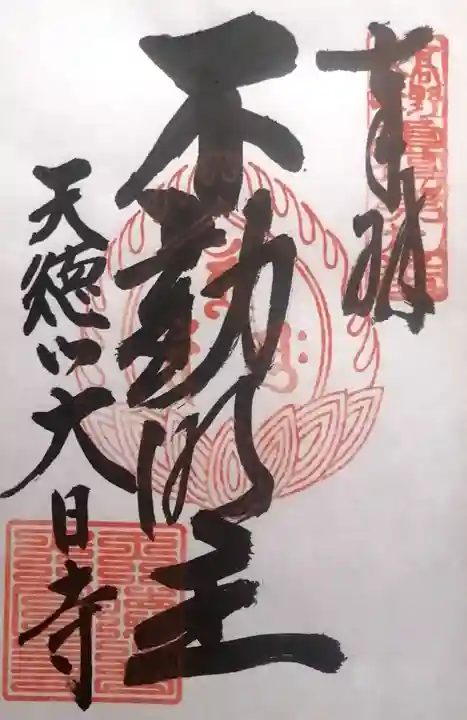 高野
奉拝
不動明王
天徳山大日寺